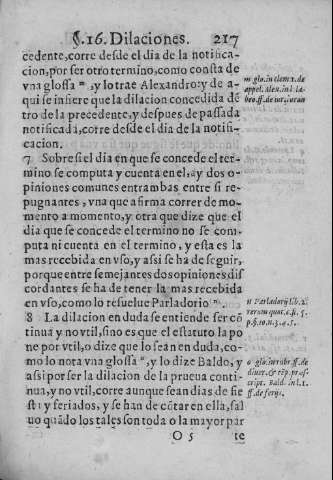 §.16. Dilaciones. 217
cedente, corre desde el dia de la notifica-
cion, por ser otro termino, como consta de
vna glossa ᵐ, y lo trae Alexandro: y de a-
qui se infiere que la dilacion concedida dẽ
tro de la precedente, y despues de passada
notificada, corre desde el dia de la notifi-
cacion.
7 Sobre si el dia en que se concede el ter-
mino se computa y cuenta en el, ay dos o-
piniones comunes entrambas entre si re-
pugnantes, vna que afirma correr de mo-
mento a momento, y otra que dize que el
dia que se concede el termino no se com-
puta ni cuenta en el termino, y esta es la
mas recebida en vso, y assi se ha de seguir,
porque entre semejantes dos opiniones dis
cordantes se ha de tener la mas recebida
en vso, como lo resuelue Parladorio ⁿ.
8 La dilacion en duda se entiende ser cõ
tinua y no vtil, sino es que el estatuto la po
ne por vtil, o dize que lo sean en duda, co-
mo lo nota vna glossa ᵒ, y lo dize Baldo, y
assi por ser la dilacion de la prueua conti-
nua, y no vtil, corre aunque sean dias de fie
stas y feriados, y se han de cõtar en ella, sal
uo quãdo los tales son toda o la mayor par
O 5 te
m glo. in clem. 1. de
appel. Alex. in l.
ff. de iur.
n Parladorij lib. 2.
rerum quot. c. fi. 5.
p. §. 10. n. 3. 4. 5.
ff. de
diuer. & tẽp. præs-
cript. Bald. in l. 1.
ff. de ferijs.